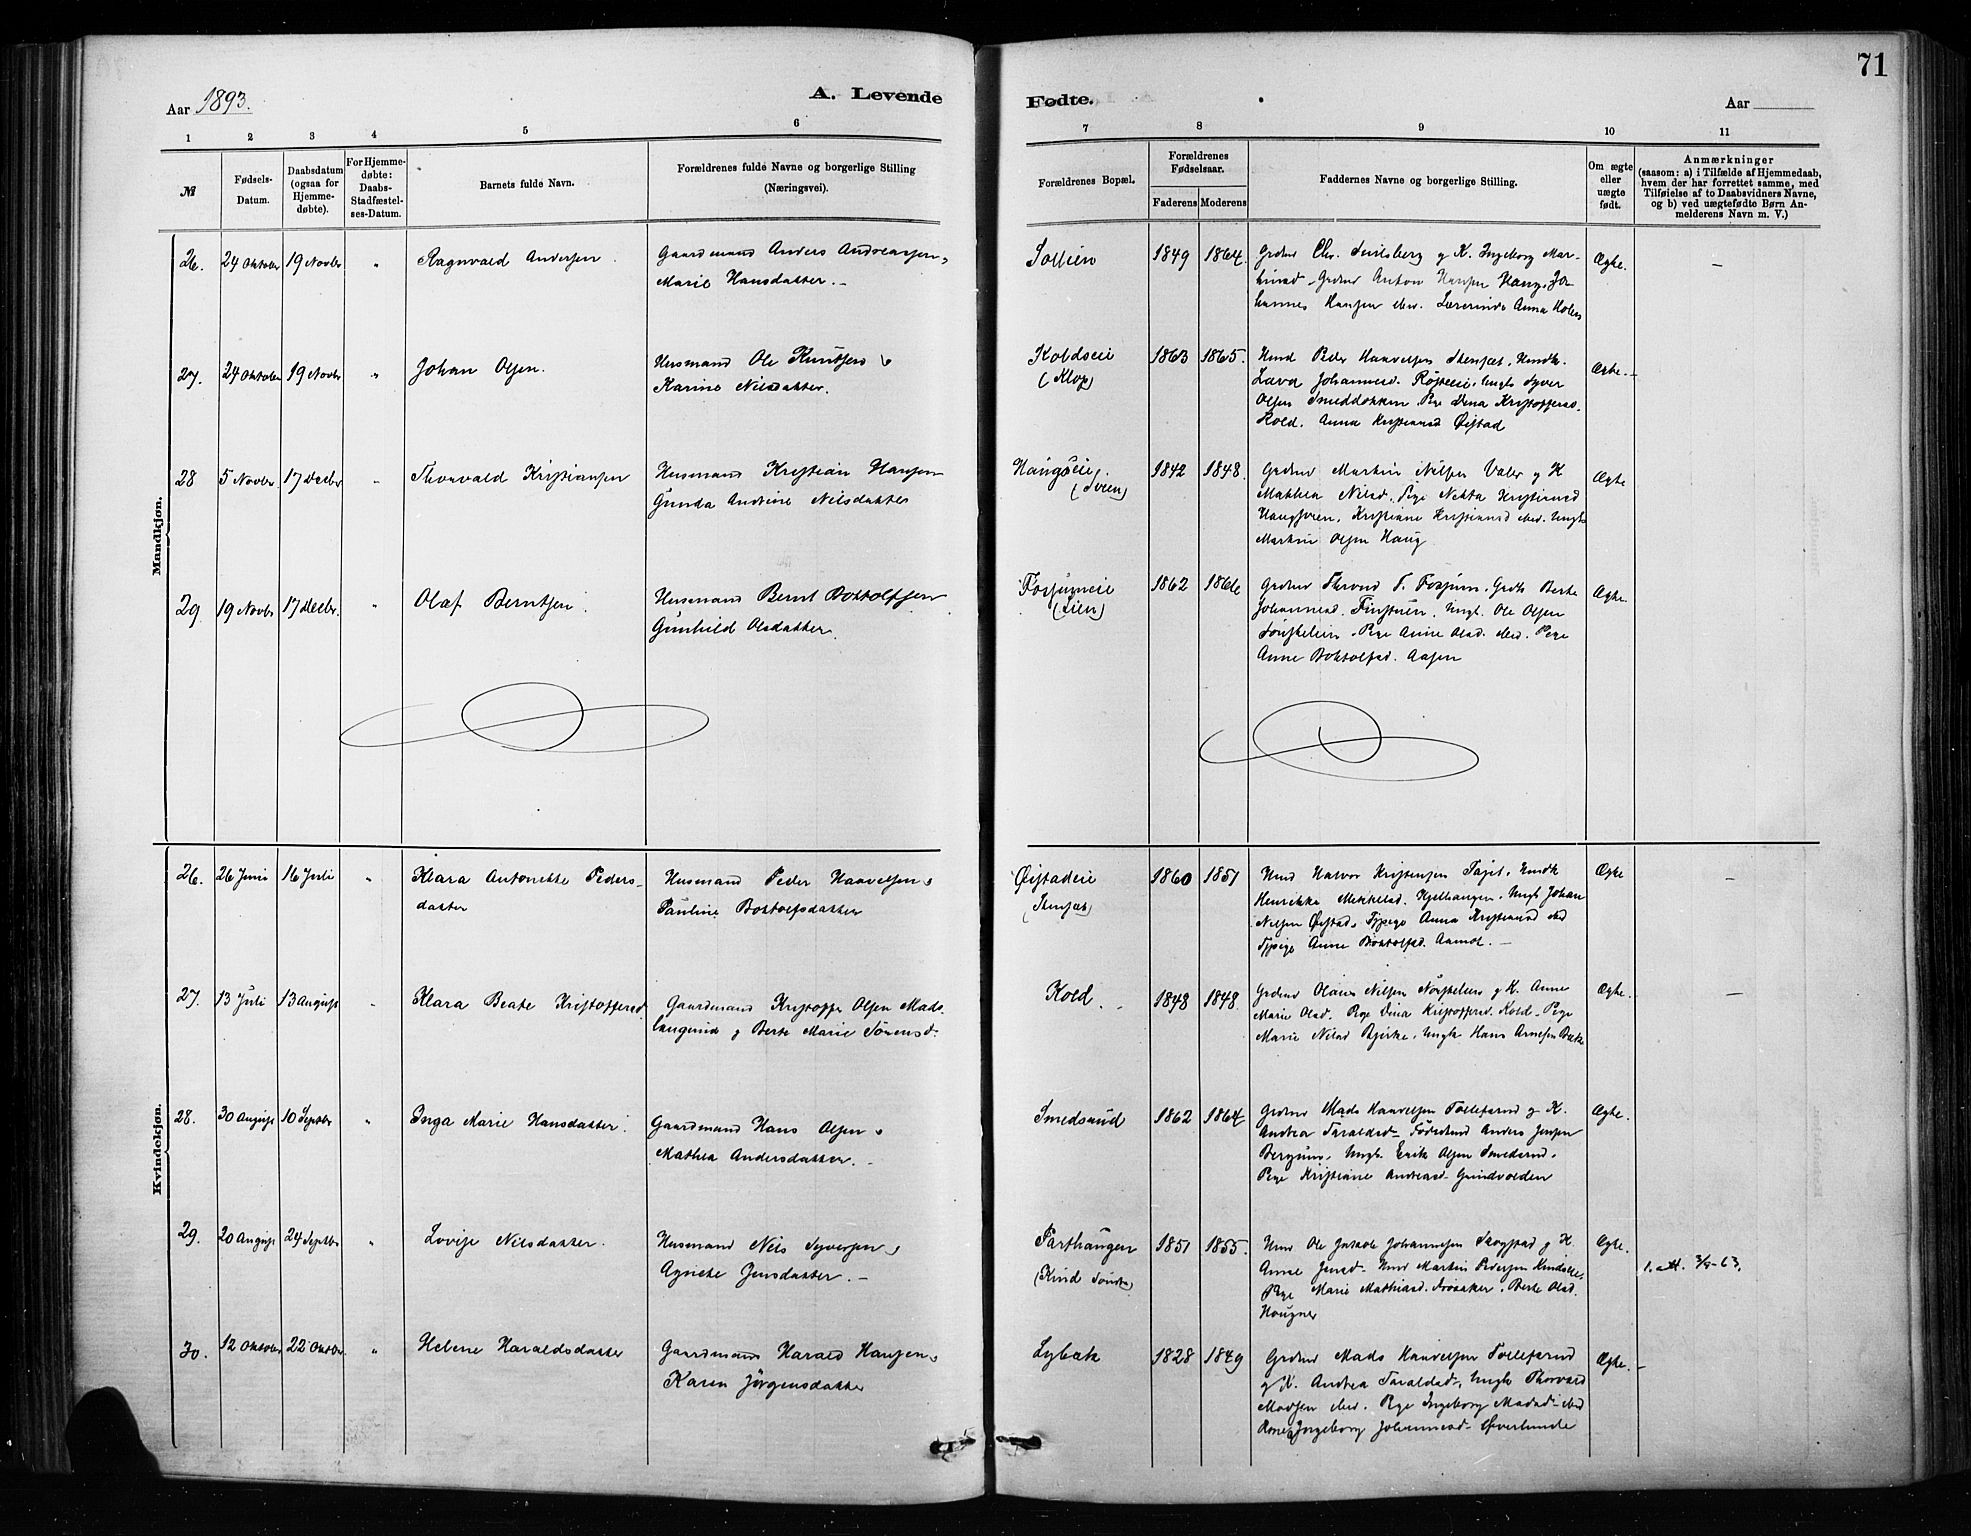 71
Aar 1893.
A. Levende
Fødte.
Aar
1 2 3 4 5 6 7 8 9 10 11
№
Fødsels-
Datum.
Daabsdatum
(ogsaa for
Hjemme-
døbte).
For Hjemme-
døbte:
Daabs-
Stadfæstel-
ses-Datum.
Barnets fulde Navn.
Forældrenes fulde Navne og borgerlige Stilling
(Næringsvei).
Forældrenes Bopæl.
Forældrenes
Fødselsaar.
Faderens Moderens
Faddernes Navne og borgerlige Stilling.
Om ægte
eller
uægte
født.
Anmærkninger
(saasom: a) i Tilfælde af Hjemmedaab,
hvem der har forrettet samme, med
Tilføielse af to Daabsvidners Navne,
og b) ved uægtefødte Børn An-
melderens Navn m. V.)
Mandkjøn.
26. 24 Oktober 19 Novbr " Ragnvald Andersen.
Gaardmand Anders Andreassen,
Marie Hansdatter.
Sollien
1849 1864.
Grdbr Chr. Smidsberg g K. Ingeborg Mar-
Grdbr Anton Hansen Haug, Jo-
hannes Hansen ibid. Lærerinde Anna Holen
Ægte. —
27. 24 Oktober 19 Novbr " Johan Olsen.
Husmand Ole Knutsen
Karine Nilsdatter.
Koldseie
(Klop)
1863 1865.
Hmd Peder Haavelsen Stensæt, Hmdk.
Johannesd. Ungk Syver
Olsen Smeddokken Pige Dina Kristoffersd.
Kold. Anna Kristiansd Øistad
Ægte.
28 5 Novbr 17 Decbr " Thorvald Kristiansen
Husmand Kristian Hansen
Gunda Andrine Nilsdatter
Haugseie
(Sveen)
1842 1848.
Grdbr Martin Nilsen Valer g K
Mathea Nilsd. Pige Nekta Kristiansd
Haugsveen, Kristiane Kristiansd ibid. Ungk
Martin Olsen Haug
Ægte
29. 19 Novbr 17 Decbr. " Olaf Berntsen.
Husmand Bernt Bottolfsen
Gunhild Olsdatter.
Fossumeie
(Lien)
1862 1866
Grdbr Thrond T. Fossum, Grdk Berte
Johannesd. Ungk. Ole Olsen
Pige Anne Olsd. ibid. Pige
Anne Bottolfsd. Aasen
Ægte.
Kvindekjøn.
26. 26 Juni 16 Juli " Klara Antonette Peders-
datter
Husmand Peder Haavelsen,
Pauline Bottolfsdatter
Øistadeie
(Stensæt)
1860 1851
Hmd Halvor Kristensen Hmdk
Henrikke Mikkelsd. Kjelhaugen, Ungk Johan
Nilsen Øistad, Tjpige Anna Kristiansd ibid
Tjpige Anne Bottolfsd. Aamot. —
Ægte —
27. 13 Juli 13 August " Klara Beate Kristoffersd.
Gaardmand Kristoffer Olsen Mads-
langrud g Berte Marie Sörensd.
Kold.
1848 1848
Grdbr Olaus Nilsen g K. Anne
Marie Olsd. Pige Dina Kristoffersd. Kold- Pige
Marie Nilsd Bjerke, Ungk Hans Arnesen
Ægte. —
28. 30 August 10 Septbr " Inga Marie Hansdatter.
Gaardmand Hans Olsen,
Mathea Andersdatter.
Smedsrud
1862 1864
Grdbr Mads Haavelsen Tollefsrud g K.
Andrea Taraldsd Anders Jensen
Ungk. Erik Olsen Smedsrud,
Pige Kristiane Andreasd- Grindvolden
Ægte.
29. 20 August 24 Septbr " Lovise Nilsdatter.
Husmand Nils Syversen,
Agnete Jensdatter.
1851 1855.
Hmd Ole Jakob Johannesen Skogstad g K.
Anne Jensd. Hmd Martin Pedersen
Pige Marie Mathiasd. Berte Olsd.
Haugner
Ægte.
1. att. 3/8-63.
30. 12 Oktober 22 Oktbr. " Helene Haraldsdatter
Gaardmand Harald Hansen,
Karen Jörgensdatter
Lybæk
1828 1849
Grdbr Mads Haavelsen Tollefsrud
g K. Andrea Taraldsd, Ungk Thorvald
Madsen ibid. Pige Ingeborg Madsd- ibid
Kone Ingeborg Johannesd- Øverlunde
Ægte.